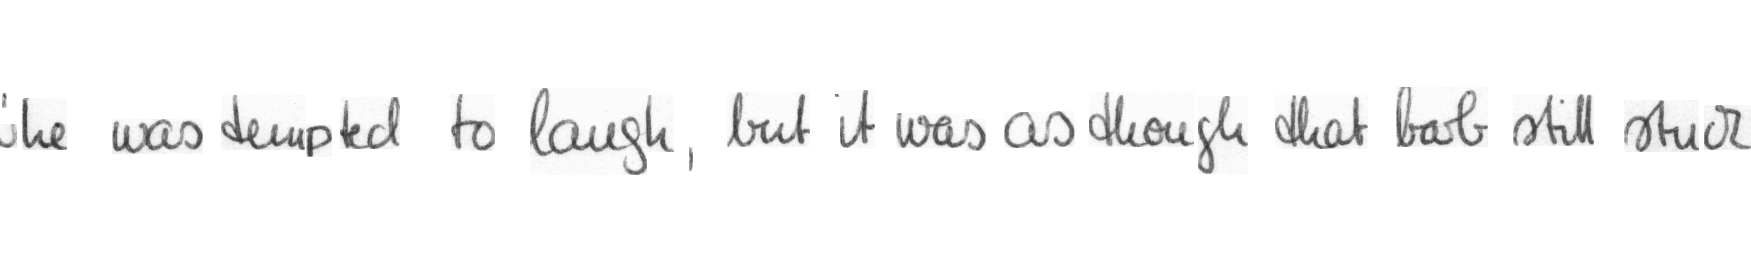 she was tempted to laugh, but it was as though that barb still stuck